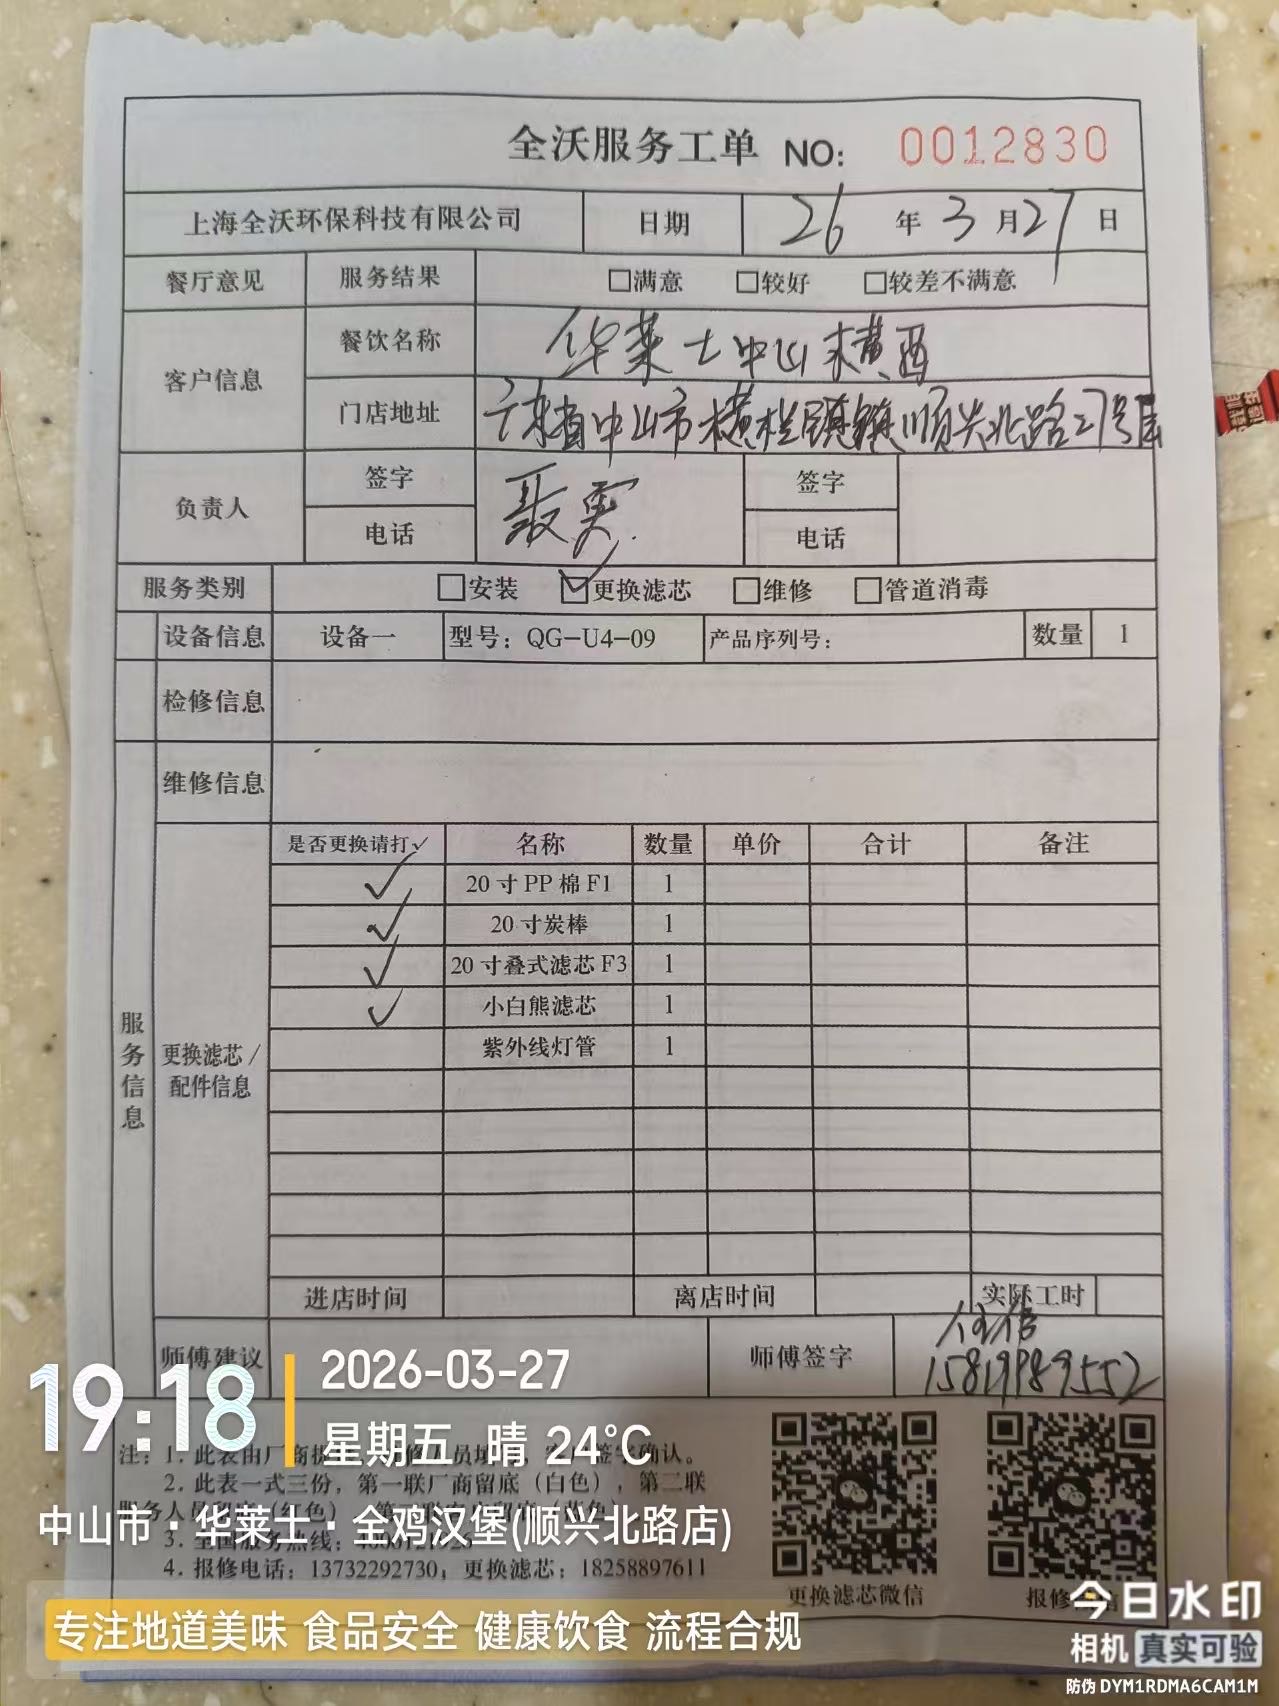 全沃服务工单 NO: 0012830
上海全沃环保科技有限公司 日期 26 年 3 月 27 日
餐厅意见 服务结果 □满意 □较好 □较差不满意
客户信息 餐饮名称 华莱士中山横西
门店地址 广东省中山市横栏镇镇顺兴北路27号
负责人 签字 签字
电话 电话
服务类别 □安装 ☑更换滤芯 □维修 □管道消毒
设备信息 设备一 型号: QG-U4-09 产品序列号: 数量 1
检修信息
维修信息
服务信息
更换滤芯/
配件信息
是否更换请打✓ 名称 数量 单价 合计 备注
✓ 20寸PP棉F1 1
✓ 20寸炭棒 1
✓ 20寸叠式滤芯F3 1
✓ 小白熊滤芯 1
紫外线灯管 1
进店时间 离店时间 实际工时
师傅建议 师傅签字
15819989552
注: 1. 此表由厂商 签字确认。
2. 此表一式三份，第一联厂商留底（白色），第二联
3. 全国服务热线:
4. 报修电话: 13732292730; 更换滤芯: 18258897611
更换滤芯微信 报修
19:18
2026-03-27
星期五 晴 24°C
中山市·华莱士·全鸡汉堡(顺兴北路店)
专注地道美味 食品安全 健康饮食 流程合规
今日水印
相机 真实可验
防伪 DYM1RDMA6CAM1M